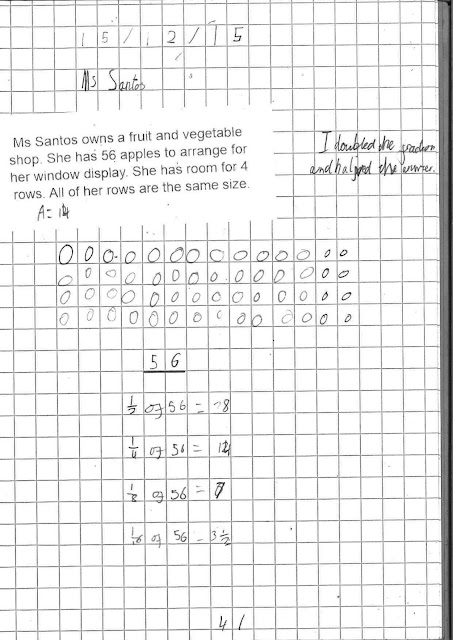 15/12/15
Ms Santos
Ms Santos owns a fruit and vegetable
shop. She has 56 apples to arrange for
her window display. She has room for 4
rows. All of her rows are the same size.
A = 14
I doubled the fraction
and halfed the answer.
56
1/2 of 56 = 28
1/4 of 56 = 14
1/8 of 56 = 7
1/16 of 56 = 3 1/2